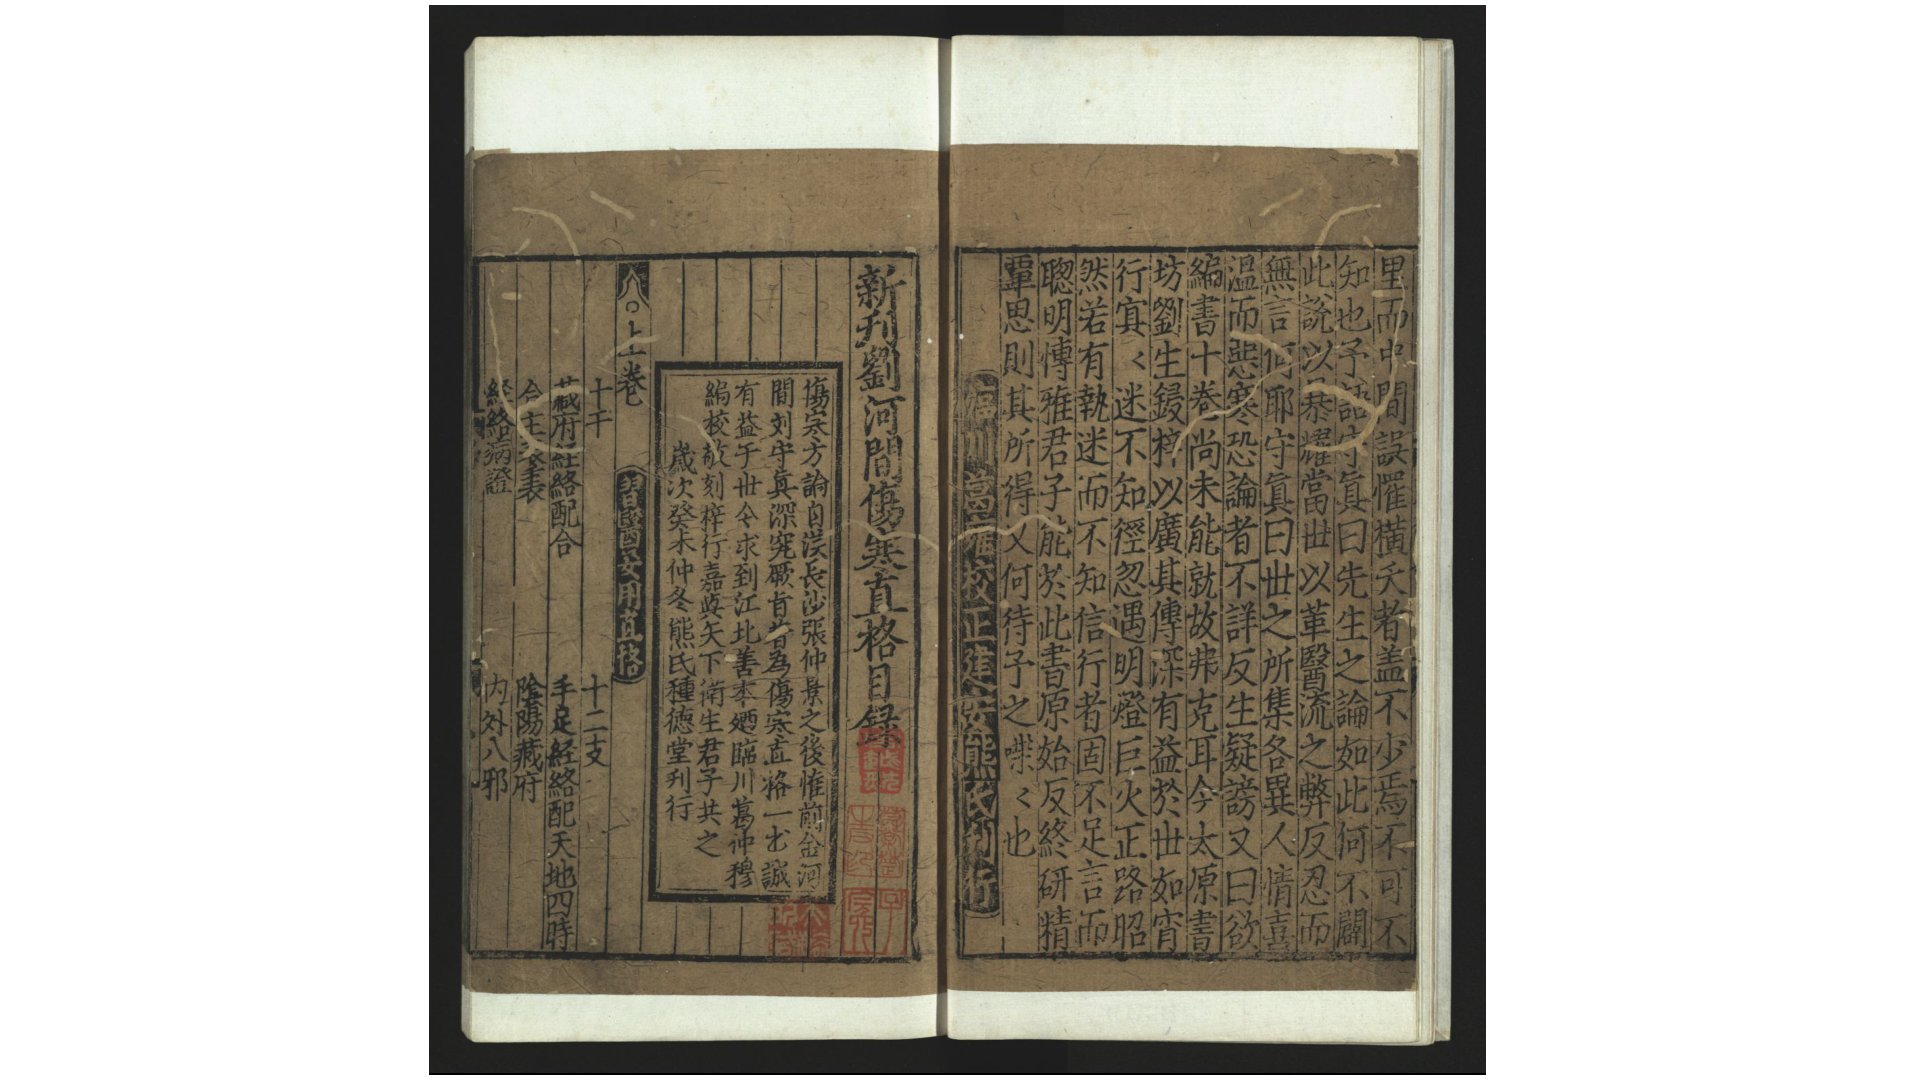 里而中間誤罹橫夭者盖不少焉不可不
知也予語守眞曰先生之論如此何不闢
此說以恭耀當世以革醫流之弊反忍而
無言何耶守眞曰世之所集各異人情喜
溫而惡寒恐論者不詳反生疑謗又曰欲
編書十卷尚未能就故弗克耳今太原書
坊劉生鋟梓以廣其傳深有益於世如宵
行寘〻迷不知徑忽遇明燈巨火正路昭
然若有執迷而不知信行者固不足言而
聦明慱雅君子能於此書原始反終研精
覃思則其所得又何待予之喋〻也
臨川葛雍校正建安熊氏刊行
新刋劉河間傷寒直格目録
傷寒方論自漢長沙張仲景之後惟前金河
間刘守眞深究厥旨著為傷寒直格一书誠
有益于世今求到江北善本廼臨川葛仲穆
編校敬刻梓行嘉與天下衛生君子共之
歲次癸未仲冬熊氏種德堂刋行
○上卷
習醫要用直格
十干
十二支
藏府經絡配合
手足經絡配天地四時
陰陽藏府
経絡病證
内外八邪